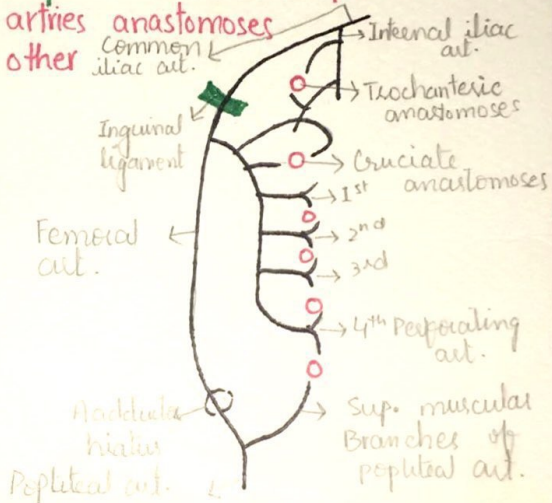 artries anastomoses
other
Common
iliac art.
Internal iliac
art.
Trochanteric
anastomoses
Inguinal
ligament
Cruciate
anastomoses
1st
2nd
3rd
Femoral
art.
4th Perforating
art.
Sup. muscular
Branches of
popliteal art.
hiatus
Popliteal art.